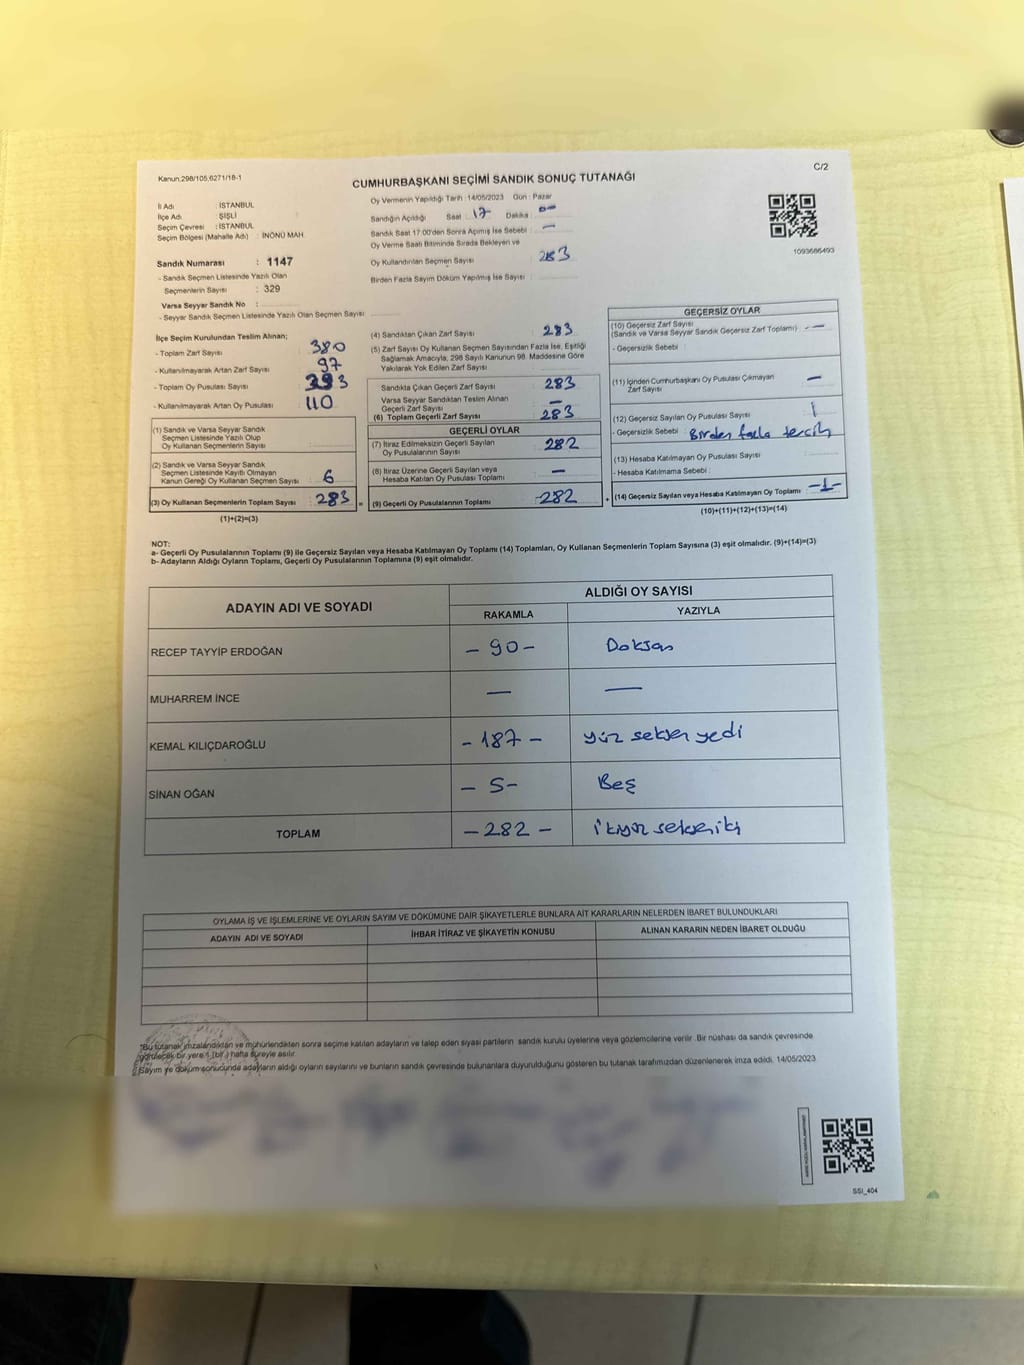 Kanun:298/105,6271/18-1
C/2
CUMHURBAŞKANI SEÇİMİ SANDIK SONUÇ TUTANAĞI
İl Adı : İSTANBUL
İlçe Adı : ŞİŞLİ
Seçim Çevresi : İSTANBUL
Seçim Bölgesi (Mahalle Adı) : İNÖNÜ MAH.
Sandık Numarası : 1147
- Sandık Seçmen Listesinde Yazılı Olan
Seçmenlerin Sayısı : 329
Varsa Seyyar Sandık No :
- Seyyar Sandık Seçmen Listesinde Yazılı Olan Seçmen Sayısı
Oy Vermenin Yapıldığı Tarih : 14/05/2023 Gün : Pazar
Sandığın Açıldığı Saat 17 Dakika
Sandık Saat 17:00'den Sonra Açılmış İse Sebebi : —
Oy Verme Saati Bitiminde Sırada Bekleyen ve
Oy Kullandırılan Seçmen Sayısı 283
Birden Fazla Sayım Döküm Yapılmış İse Sayısı :
1093686493
İlçe Seçim Kurulundan Teslim Alınan;
- Toplam Zarf Sayısı 380
- Kullanılmayarak Artan Zarf Sayısı 97
- Toplam Oy Pusulası Sayısı 393
- Kullanılmayarak Artan Oy Pusulası 110
(1) Sandık ve Varsa Seyyar Sandık
Seçmen Listesinde Yazılı Olup
Oy Kullanan Seçmenlerin Sayısı
(2) Sandık ve Varsa Seyyar Sandık
Seçmen Listesinde Kayıtlı Olmayan
Kanun Gereği Oy Kullanan Seçmen Sayısı 6
(3) Oy Kullanan Seçmenlerin Toplam Sayısı : 283 =
(1)+(2)=(3)
(4) Sandıktan Çıkan Zarf Sayısı 283
(5) Zarf Sayısı Oy Kullanan Seçmen Sayısından Fazla İse, Eşitliği
Sağlamak Amacıyla, 298 Sayılı Kanunun 98. Maddesine Göre
Yakılarak Yok Edilen Zarf Sayısı
Sandıkta Çıkan Geçerli Zarf Sayısı 283
Varsa Seyyar Sandıktan Teslim Alınan
Geçerli Zarf Sayısı —
(6) Toplam Geçerli Zarf Sayısı 283
GEÇERLİ OYLAR
(7) İtiraz Edilmeksizin Geçerli Sayılan
Oy Pusulalarının Sayısı 282
(8) İtiraz Üzerine Geçerli Sayılan veya
Hesaba Katılan Oy Pusulası Toplamı —
(9) Geçerli Oy Pusulalarının Toplamı -282 +
GEÇERSİZ OYLAR
(10) Geçersiz Zarf Sayısı
(Sandık ve Varsa Seyyar Sandık Geçersiz Zarf Toplamı) —
- Geçersizlik Sebebi :
(11) İçinden Cumhurbaşkanı Oy Pusulası Çıkmayan
Zarf Sayısı —
(12) Geçersiz Sayılan Oy Pusulası Sayısı 1
- Geçersizlik Sebebi : Birden fazla tercih
(13) Hesaba Katılmayan Oy Pusulası Sayısı
- Hesaba Katılmama Sebebi :
(14) Geçersiz Sayılan veya Hesaba Katılmayan Oy Toplamı -1-
(10)+(11)+(12)+(13)=(14)
NOT:
a- Geçerli Oy Pusulalarının Toplamı (9) ile Geçersiz Sayılan veya Hesaba Katılmayan Oy Toplamı (14) Toplamları, Oy Kullanan Seçmenlerin Toplam Sayısına (3) eşit olmalıdır. (9)+(14)=(3)
b- Adayların Aldığı Oyların Toplamı, Geçerli Oy Pusulalarının Toplamına (9) eşit olmalıdır.
ADAYIN ADI VE SOYADI ALDIĞI OY SAYISI
RAKAMLA YAZIYLA
RECEP TAYYİP ERDOĞAN - 90 - Doksan
MUHARREM İNCE — —
KEMAL KILIÇDAROĞLU - 187 - yüz seksen yedi
SİNAN OĞAN - 5- Beş
TOPLAM - 282 - ikiyüz sekseniki
OYLAMA İŞ VE İŞLEMLERİNE VE OYLARIN SAYIM VE DÖKÜMÜNE DAİR ŞİKAYETLERLE BUNLARA AİT KARARLARIN NELERDEN İBARET BULUNDUKLARI
ADAYIN ADI VE SOYADI İHBAR İTİRAZ VE ŞİKAYETİN KONUSU ALINAN KARARIN NEDEN İBARET OLDUĞU
*Bu tutanak imzalandıktan ve mühürlendikten sonra seçime katılan adayların ve talep eden siyasi partilerin sandık kurulu üyelerine veya gözlemcilerine verilir. Bir nüshası da sandık çevresinde
görülecek bir yere 1 (bir) hafta süreyle asılır.
Sayım ve döküm sonucunda adayların aldığı oyların sayılarını ve bunların sandık çevresinde bulunanlara duyurulduğunu gösteren bu tutanak tarafımızdan düzenlenerek imza edildi. 14/05/2023
SSI_404